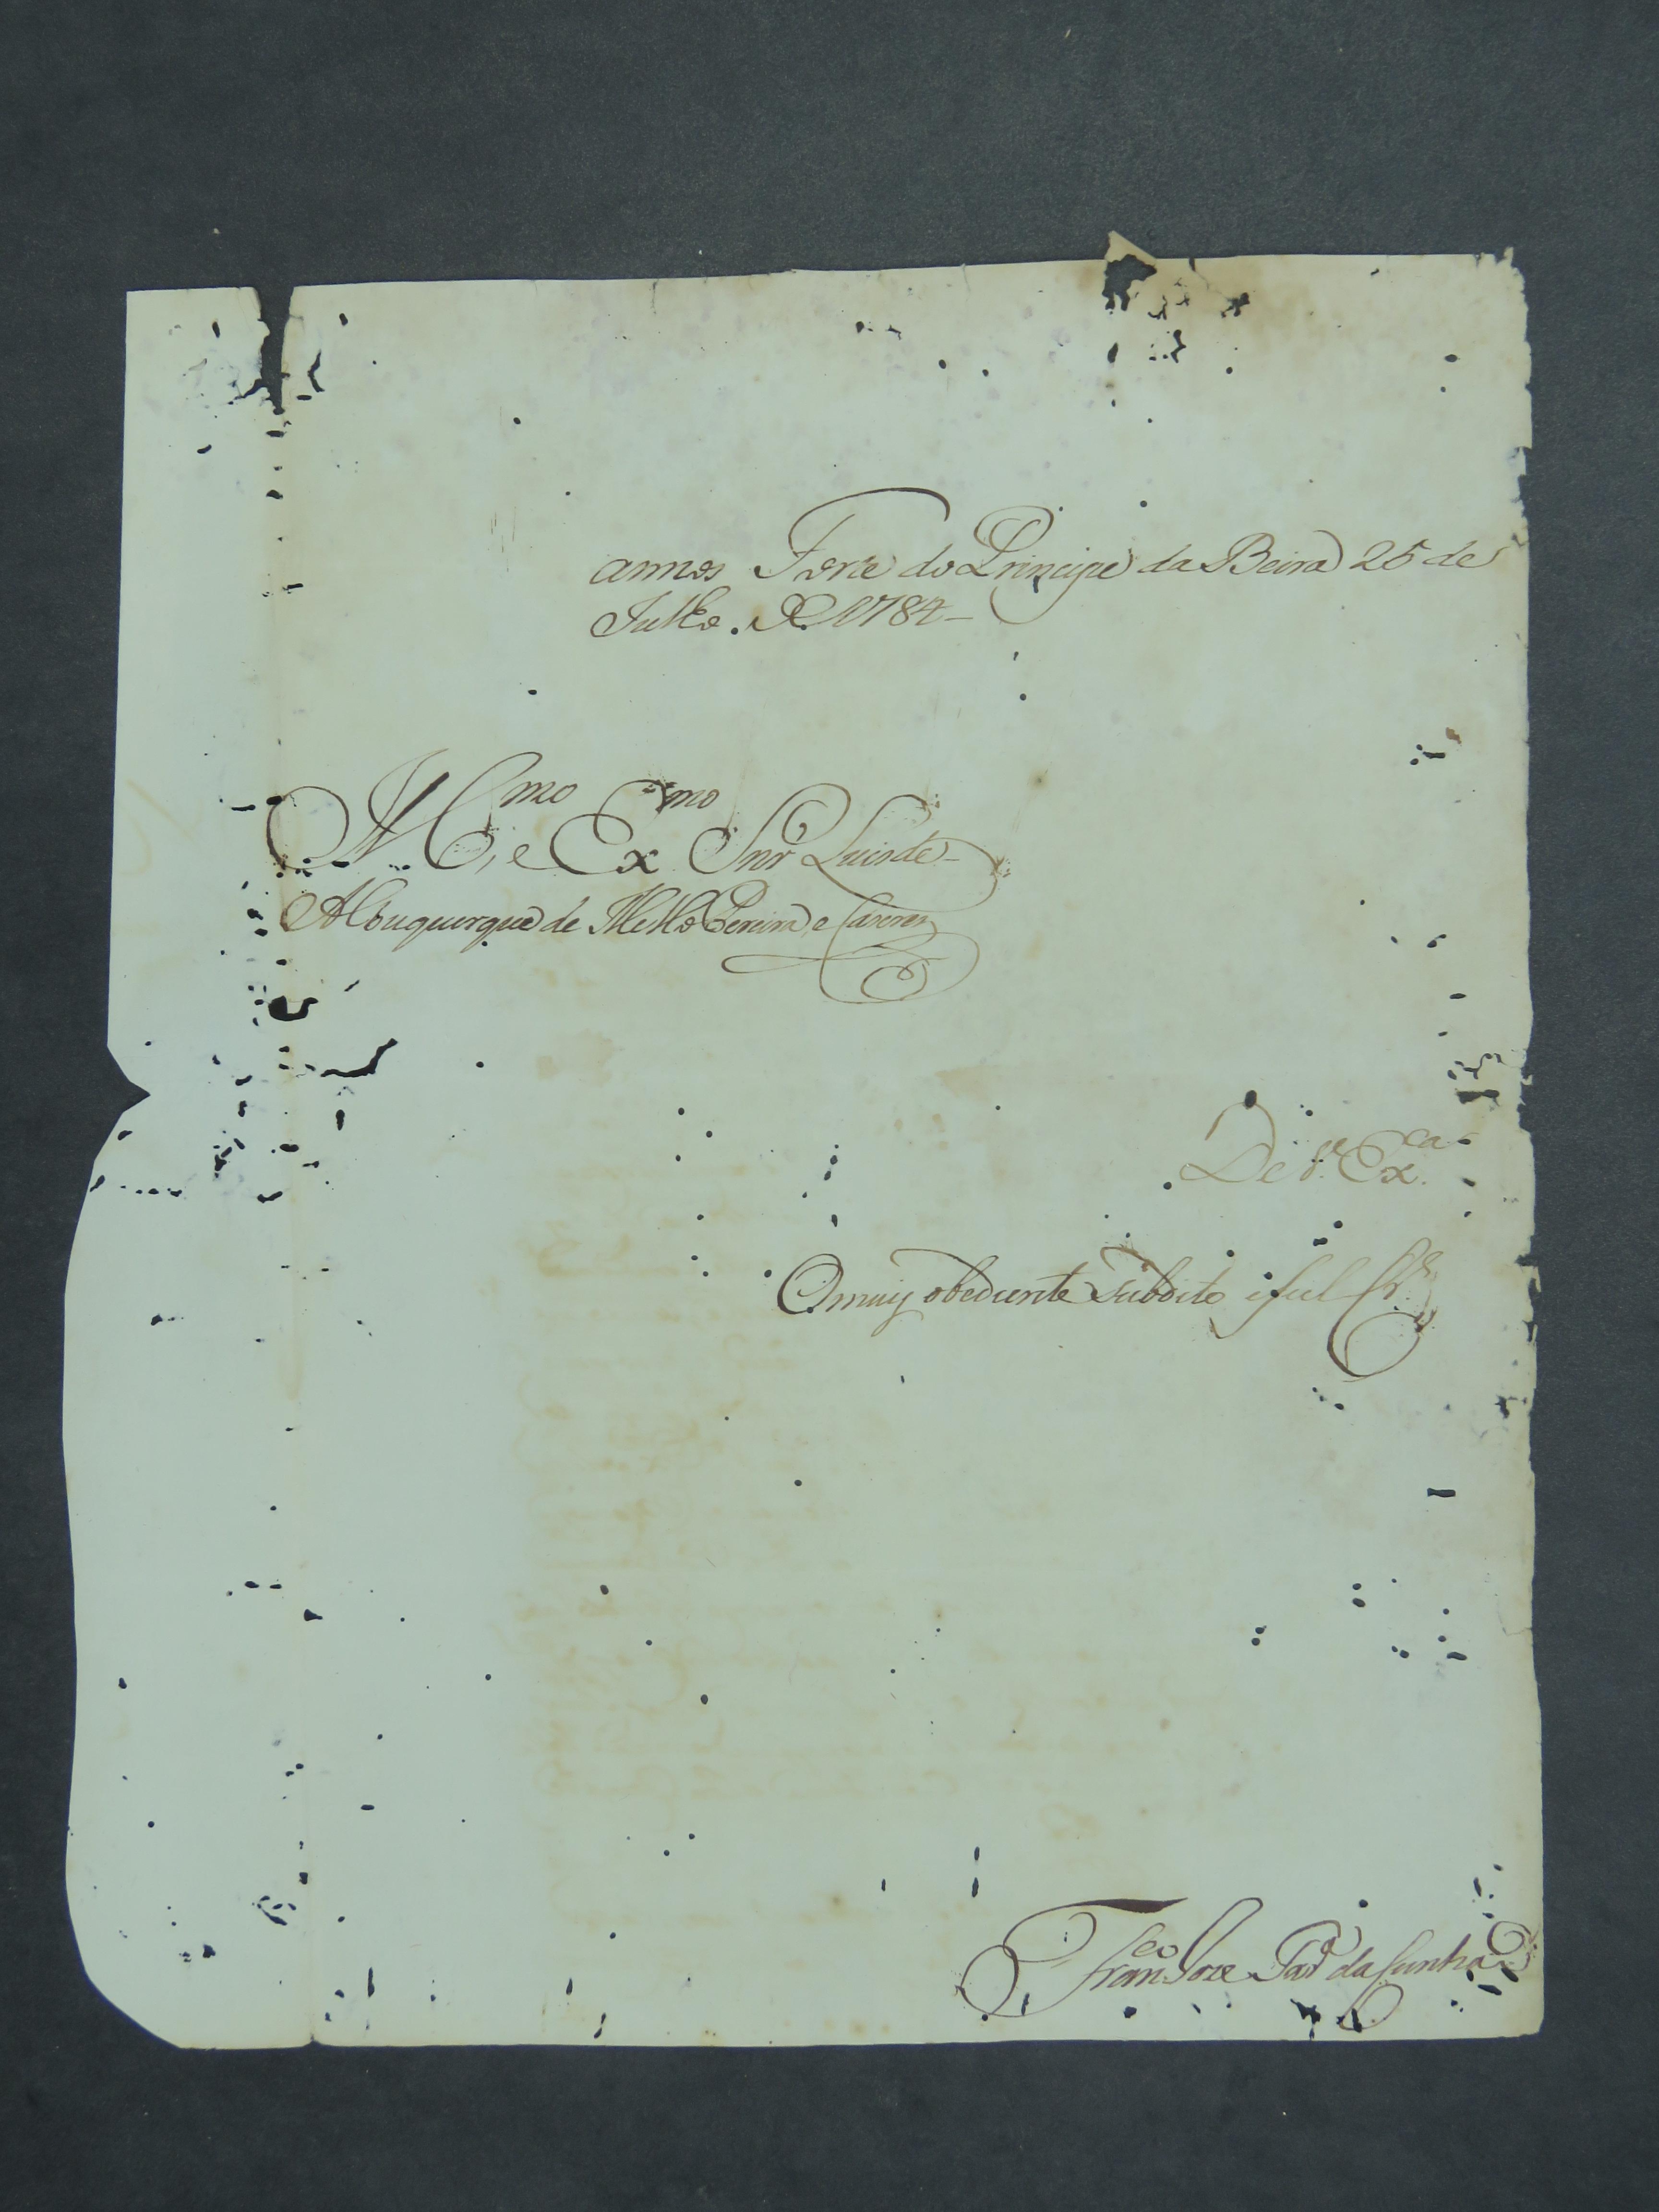 annos Forte do Principe da Beira 25 de
Julho. de 1784
Ill.mo e Ex.mo Snr Luis de
Albuquerque de Mello Pereira e Caceres
De V. Ex.ca
O muy obediente subdito e fiel Cr.o
Fran.co Joze da Cunha